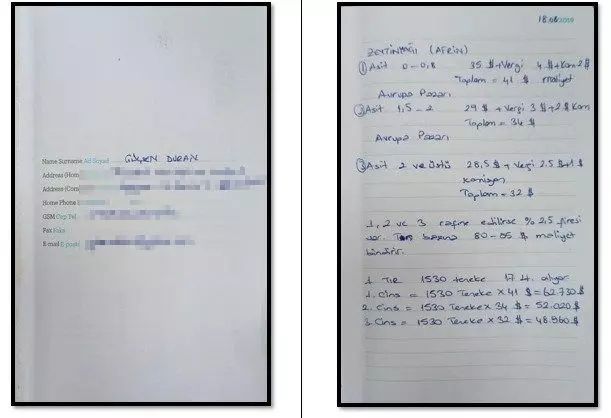 Name Surname Ad Soyad GÜLŞEN DURAN
Address (Hom
Address (Com
Home Phone
GSM Cep Tel
Fax Faks
E-mail E-posta
18.08.2019
ZEYTİNYAĞI (AFRİN)
① Asit 0-0,8 35 $ + Vergi 4 $ + Kom 2 $
Toplam = 41 $ maliyet
Avrupa Pazarı
② Asit 1,5-2 29 $ + Vergi 3 $ + 2 $ Kom
Toplam = 34 $
Avrupa Pazarı
③ Asit 2 ve üstü 28,5 $ + Vergi 2.5 $ + 1 $
Toplam = 32 $
1, 2 ve 3 rafine edilirse % 2,5 firesi
var. Ton başına 80-85 $ maliyet
bindirir.
1 Tır 1530 teneke 17 t. alıyor
1. Cins = 1530 Teneke x 41 $ = 62.730 $
2. Cins = 1530 Teneke x 34 $ = 52.020 $
3. Cins = 1530 Teneke x 32 $ = 48.960 $